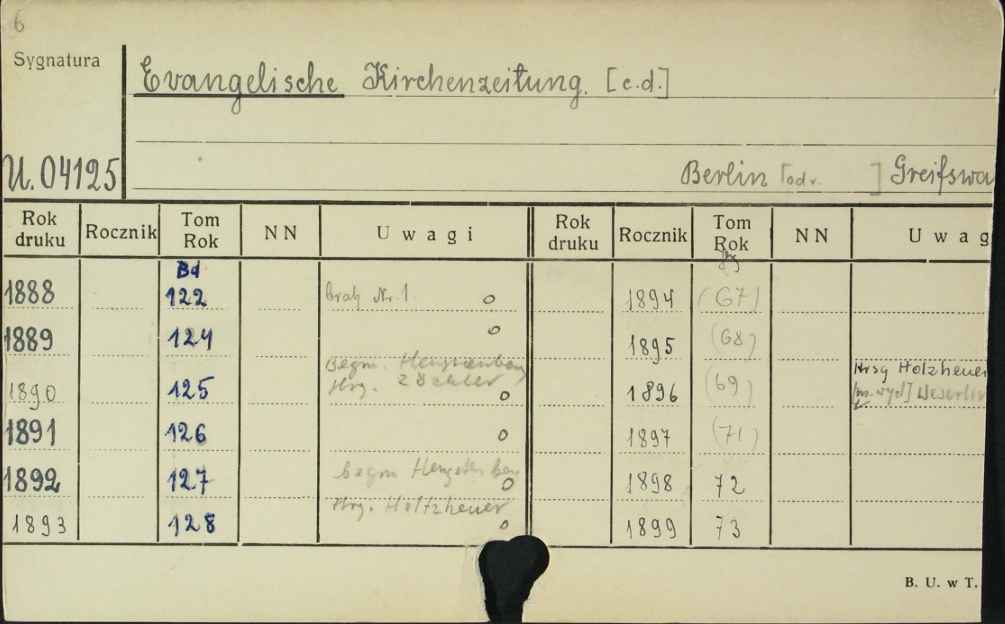 6
Sygnatura
Evangelische Kirchenzeitung. [c.d.]
U. 04125
Berlin [odr. ] Greifswa
Rok druku Rocznik Tom Rok NN Uwagi Rok druku Rocznik Tom Rok NN Uwag
Bd
1888 122 brak Nr. 1 o 1894 (67)
1889 124 o 1895 (68)
Begrn. Hengstenberg Hrsg Holzheuer
1890 125 Hrg. Zöckler o 1896 (69)
1891 126 o 1897 (71)
1892 127 begrn Hengstenberg o 1898 72
Hrg. Holtzheuer
1893 128 o 1899 73
B. U. w T.